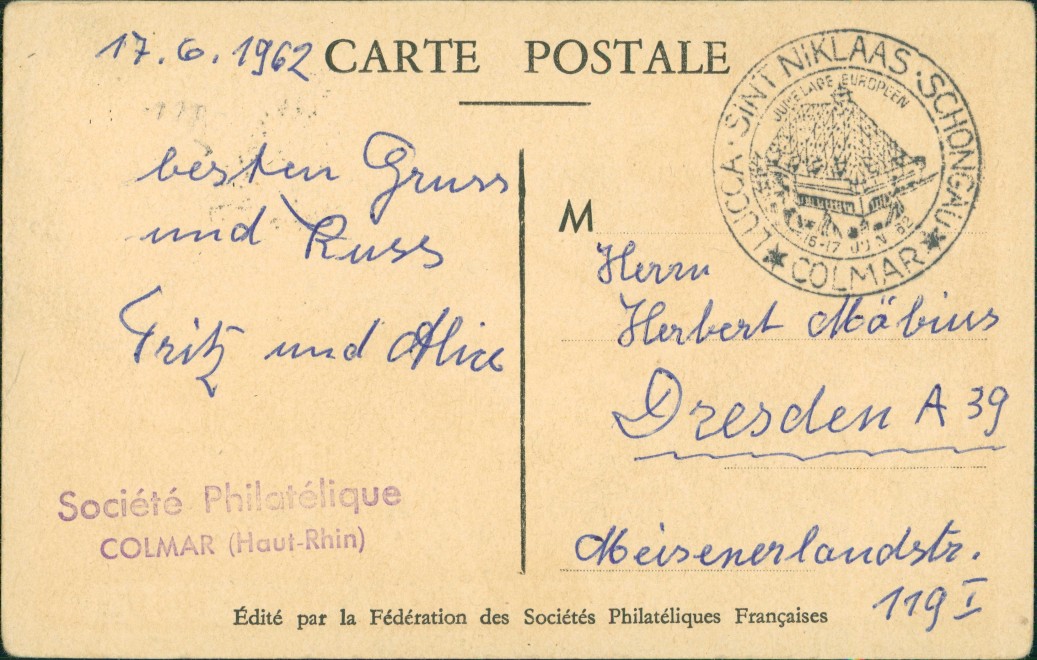 17.6.1962
CARTE POSTALE
LUCCA · SINT NIKLAAS · SCHONGAU
JUMELAGE EUROPEEN
16-17 JUIN 62
COLMAR
besten Gruss
und Kuss
Fritz und Alice
M
Herrn
Herbert Mäbius
Dresden A 39
Meisenerlandstr.
119 I
Société Philatélique
COLMAR (Haut-Rhin)
Édité par la Fédération des Sociétés Philatéliques Françaises